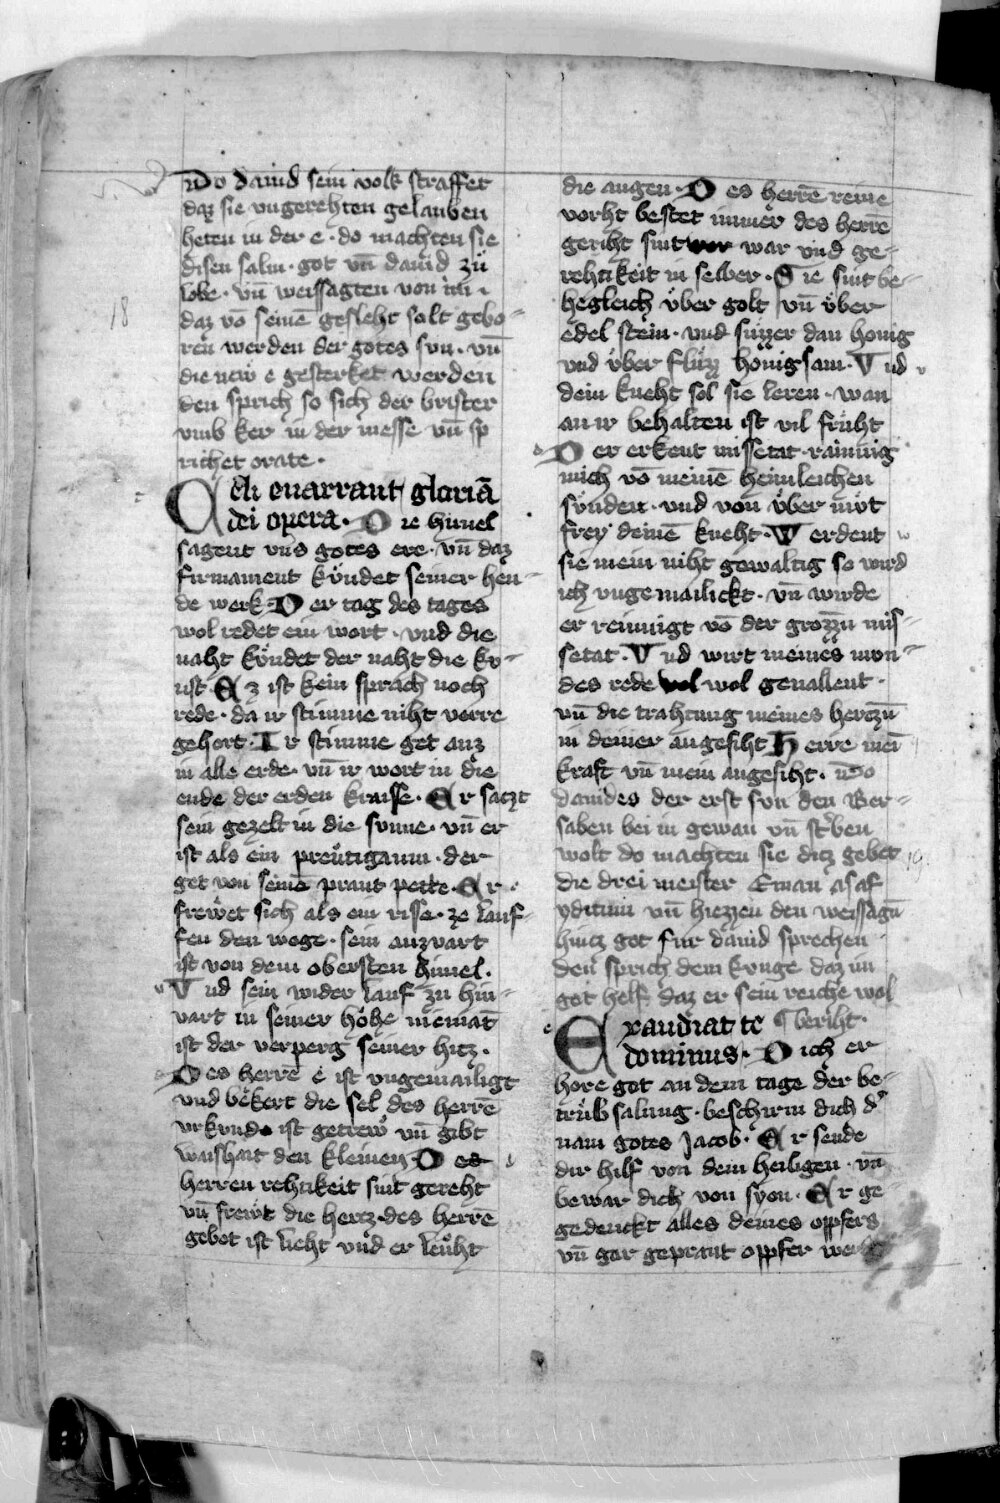 Do dauid sein volk straffet
daz sie vngerehten gelauben
heten in der e · do machten sie
disen salm · got vn̄ dauid zů
lobe · vn̄ weissagten von im ·
daz vō seinē gesleht solt gebo-
ren werden der gotes sun · vn̄
die new e gesterket werden
den sprich so sich der brister
vmb ker in der messe vn̄ sp
richet orate ·
Celi enarrant gloriā
dei opera · Die himel
sagent vns gotes ere · vn̄ daz
firmament kündet seiner hen-
de werk · Der tag des tages
wol redet ein wort · vnd die
naht kündet der naht die kv-
nst · Ez ist kein sprach noch
rede · da ir stimme niht werre
gehort · Ir stimme get auz
in alle erde · vn̄ ir wort in die
ende der erden kraisse · Er satzt
sein gezelt in die sunne · vn̄ er
ist als ein preutigaum · der
get von seinē praut pette · Er
frewet sich als ein risse · ze lauf-
fen den wege · sein auzvart
ist von dem obersten himel ·
Vnd sein wider lauf zu hin-
vart in seiner höhe niemāt
ist der verperg seiner hitz ·
Des herrē e ist vngemailigt
vnd bekert die sel des herrē
vrkund ist getrew vn̄ gibt
waishait den kleinen · Des
herren rehtikeit sint gereht
vn̄ frewt die hertz · des herre
gebot ist lieht vnd er leuht
18
die augen · Des herrē reine
vorht bestet immer des herrē
geriht sint war vnd ge-
rehtikeit in selber · Sie sint be-
hegleich über golt vn̄ über
edel stein · vnd süzzer dan honig
vnd über fluzz honigsam · Vnd
dein kneht sol sie leren · wan
an ir behalten ist vil früht
Der erkent missetat · rainig
mich vō meinē heimleichen
sünden · vnd von über müt
frey deinē kneht · Werdent
sie mein niht gewaltig so wird
ich vngemailickt · vn̄ wirde
er reinigt vō der grozzn̄ mis-
setat · Vnd wirt meines mun-
des rede wol geuallent ·
vn̄ die trahtung meines hertzn̄
in deiner angesiht Herre mei
kraft vn̄ mein angesiht · Do
dauides der erst sun den Ber-
saben bei im gewan vn̄ st'ben
wolt do machten sie ditz gebet
die drei meister Eman asaf
yditum vn̄ hiezzen den weissagn̄
hintz got fur dauid sprechen
den sprich dem kunge daz im
got helf daz er sein reiche wol
¶ beriht ·
Exaudiat te
dominus · Dich er
hore got an dem tage der be-
trüb salung · beschirm dich d'
nam gotes Jacob · Er sende
dir hilf von dem heiligen · vn̄
bewar dich von syon · Er ge
gedenckt alles deines oppfers
vn̄ gar geprant oppfer
19